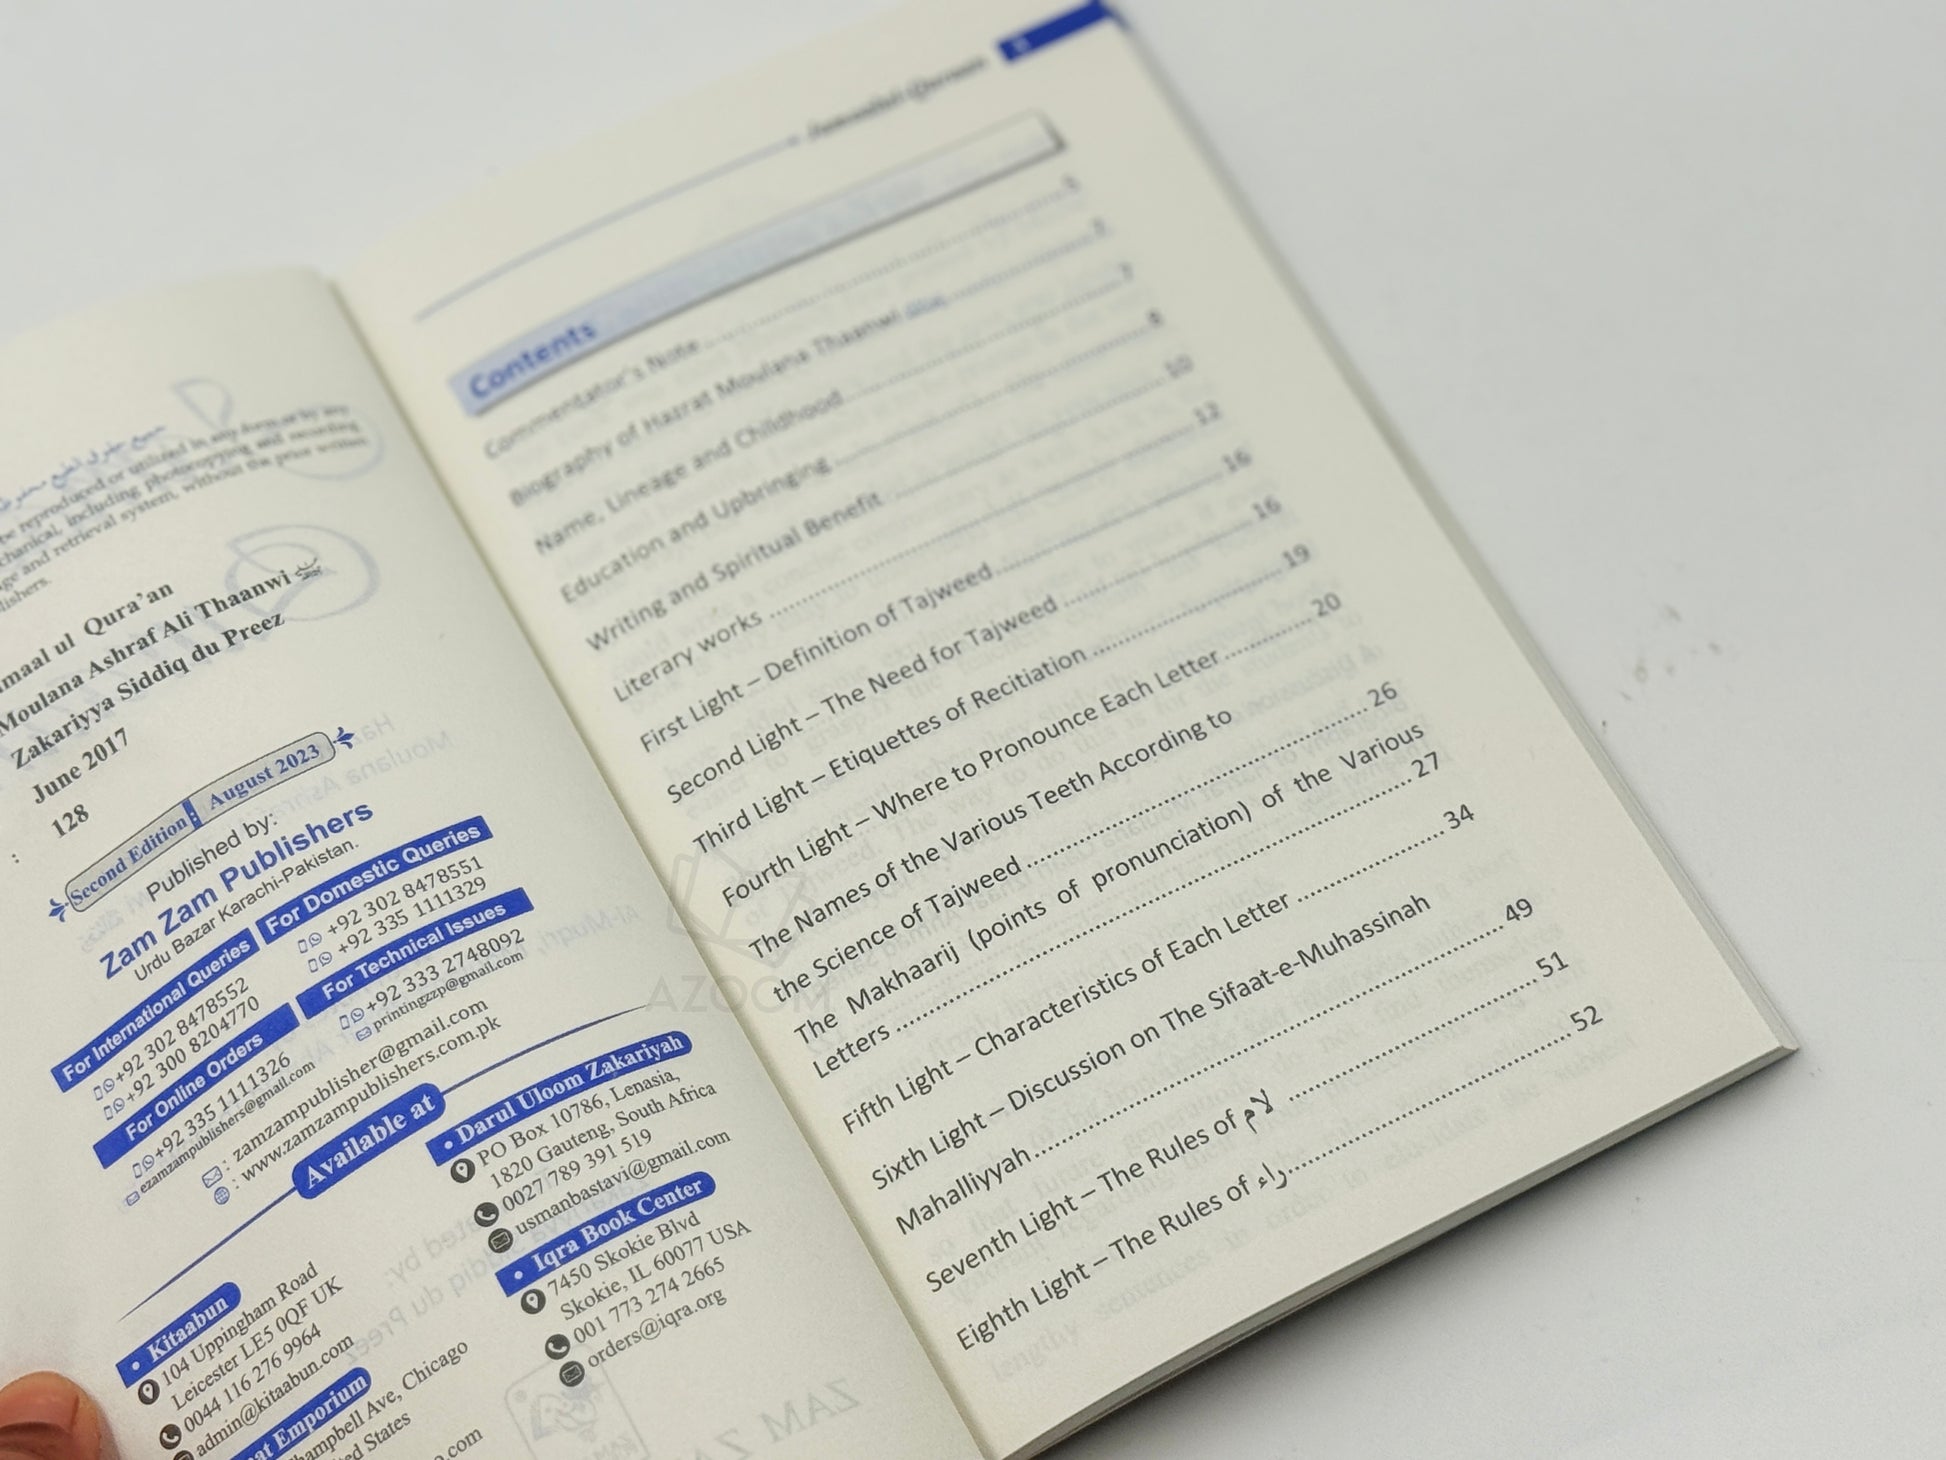 be reproduced or utilized in any form or by any
including photocopying and recording
and retrieval system, without the prior written
Qura'an
Moulana Ashraf Ali Thaanwi
Zakariyya Siddiq du Preez
June 2017
128
:
Second Edition : August 2023
Published by:
Zam Zam Publishers
Urdu Bazar Karachi-Pakistan.
For International Queries
+92 302 8478552
+92 300 8204770
For Domestic Queries
+92 302 8478551
+92 335 1111329
For Online Orders
+92 335 1111326
ezamzampublishers@gmail.com
For Technical Issues
+92 333 2748092
printingzzp@gmail.com
: zamzampublisher@gmail.com
: www.zamzampublishers.com.pk
Available at
• Kitaabun
104 Uppingham Road
Leicester LE5 0QF UK
0044 116 276 9964
admin@kitaabun.com
Emporium
Ave, Chicago
States
• Darul Uloom Zakariyah
PO Box 10786, Lenasia,
1820 Gauteng, South Africa
0027 789 391 519
usmanbastavi@gmail.com
• Iqra Book Center
7450 Skokie Blvd
Skokie, IL 60077 USA
001 773 274 2665
orders@iqra.org
Contents
Commentator's Note
Biography of Hazrat Moulana Thaanwi
Name, Lineage and Childhood 7
Education and Upbringing 8
Writing and Spiritual Benefit 10
Literary works 12
First Light – Definition of Tajweed 16
Second Light – The Need for Tajweed 16
Third Light – Etiquettes of Recitiation 19
Fourth Light – Where to Pronounce Each Letter 20
The Names of the Various Teeth According to
the Science of Tajweed 26
The Makhaarij (points of pronunciation) of the Various
Letters 27
Fifth Light – Characteristics of Each Letter 34
Sixth Light – Discussion on The Sifaat-e-Muhassinah
Mahalliyyah 49
Seventh Light – The Rules of لام 51
Eighth Light – The Rules of راء 52
AZOOM